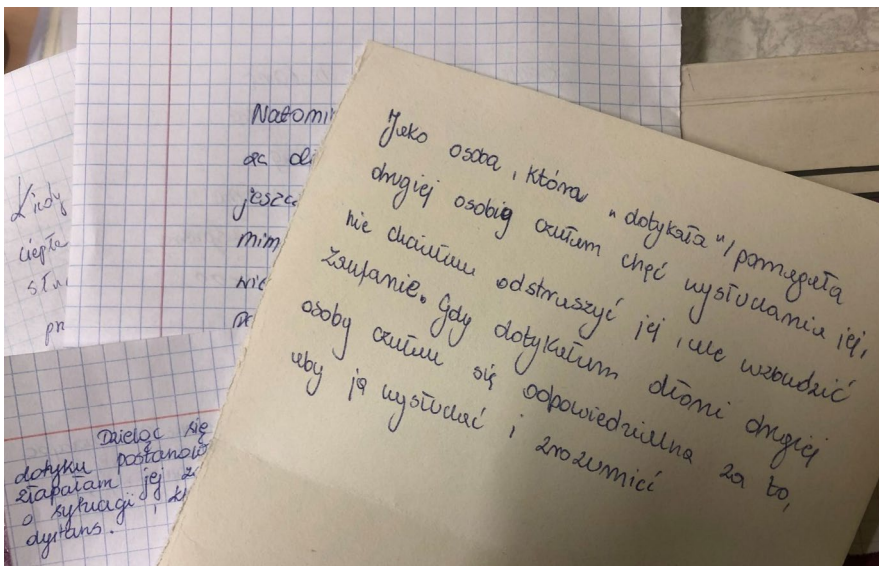 Natomi
za
jeszc
mim
nie
Kiedy
ciepła
słu
pr
Dzieląc się
dotyku postanow
złapałam jej
o sytuacji i
dystans.
Jako osoba, która "dotykała"/pomagała
drugiej osobię czułam chęć wysłuchania jej,
nie chciałam odstraszyć jej, ale wzbudzić
zaufanie. Gdy dotykałam dłoni drugiej
osoby czułam się odpowiedzialna za to,
aby ją wysłuchać i zrozumieć